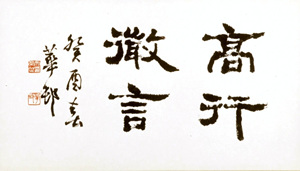 高行
微言
癸酉春
華